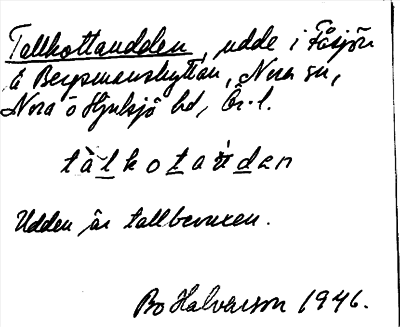 Tallkottaudden, udde i Fåsjön
å Bergsmanshyttan, Nora sn,
Nora o Hjulsjö bd, Ör. l.
tàlkotaùden
Udden är tallbevuxen.
Bo Halvarson 1946.